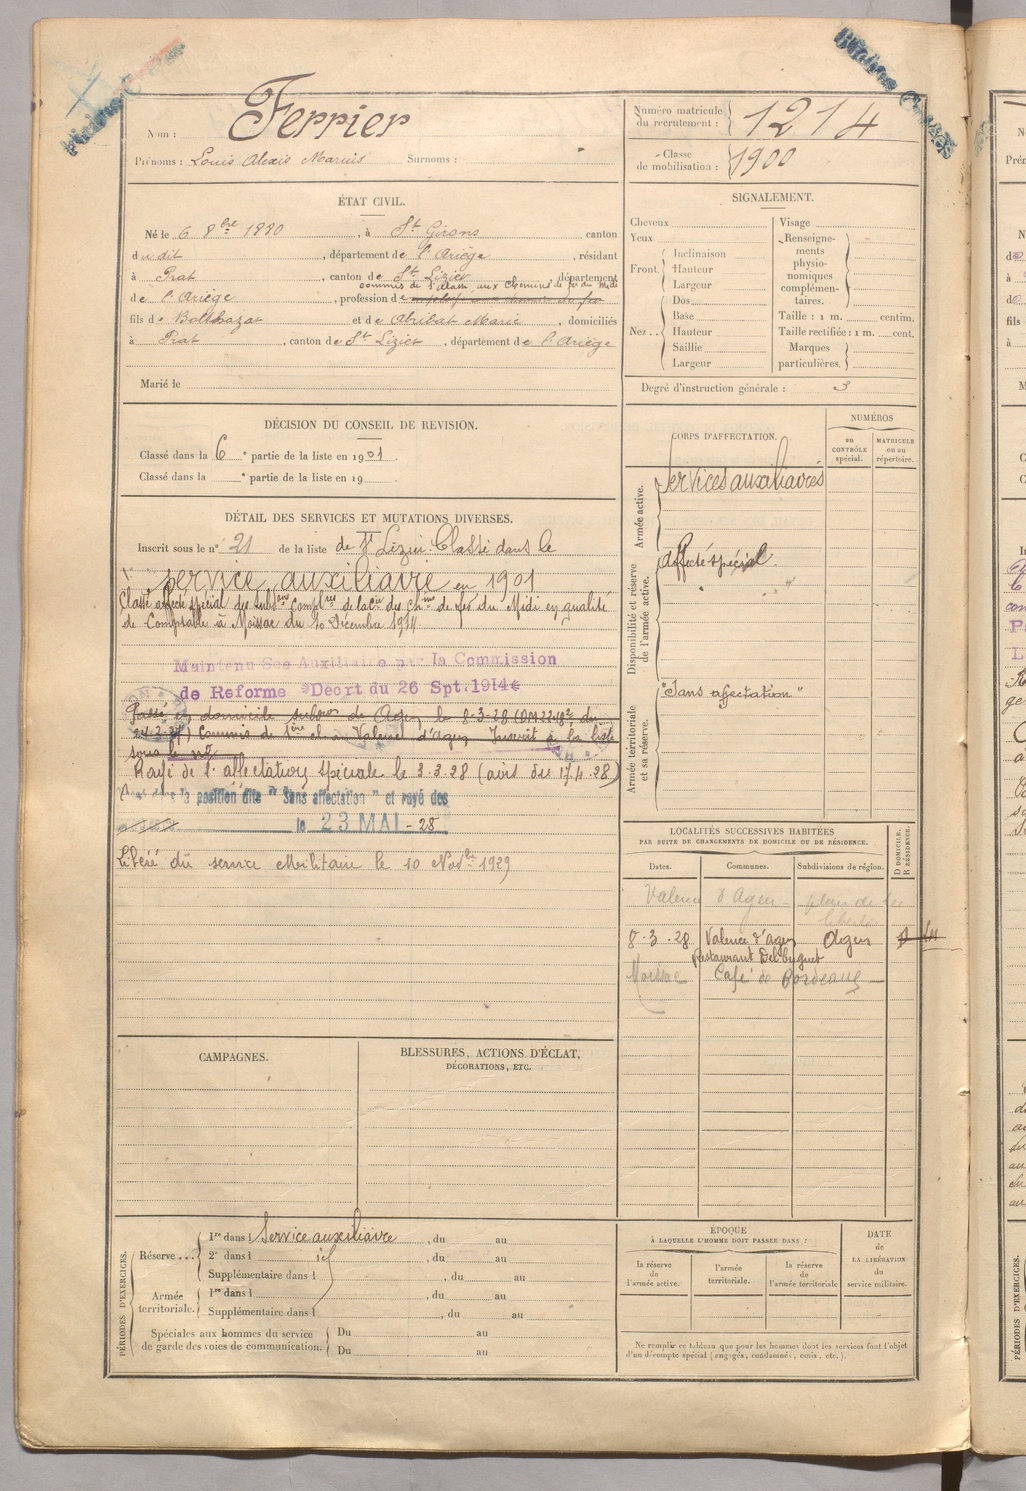 Nom : Ferrier
Prénoms : Louis Alexis Marius Surnoms :
Numéro matricule du recrutement : 1214
Classe de mobilisation : 1900
ÉTAT CIVIL.
Né le 6 8bre 1880, à St Girons canton
du dit, département de l'Ariège, résidant
à Prat, canton de St Lizier, département
commis de 1e classe aux chemins de fer du Midi
de l'Ariège, profession de employé aux chemins de fer
fils de Balthazar et de Abribat Marie, domiciliés
à Prat, canton de St Lizier, département de l'Ariège
Marié le
SIGNALEMENT.
Cheveux
Yeux
Front
Inclinaison
Hauteur
Largeur
Nez
Dos
Base
Hauteur
Saillie
Largeur
Visage
Renseignements physionomiques complémentaires.
Taille : 1 m. centim.
Taille rectifiée : 1 m. cent.
Marques particulières.
Degré d'instruction générale : 3
DÉCISION DU CONSEIL DE REVISION.
Classé dans la 6e partie de la liste en 1901.
Classé dans la e partie de la liste en 19
DÉTAIL DES SERVICES ET MUTATIONS DIVERSES.
Inscrit sous le n° 21 de la liste de St Lizier. Classé dans le
service auxiliaire en 1901
Classé affecté spécial des subons complres de la cie des chins de fer du Midi en qualité
de Comptable à Moissac du 10 Décembre 1914
Maintenu Sce Auxiliaire par la Commission
de Reforme *Décrt du 26 Spt. 1914*
Passé en domicile subon de Agen le 8-3-28
Commis de 1ère cl. à Valence d'Agen Inscrit à la liste
sous le n°
Rayé de l'affectation spéciale le 3.3.28 (avis du 17.4.28)
dans la position dite "Sans affectation" et rayé des
le 23 MAI - 28
Libéré du service Militaire le 10 Novbre 1929
CORPS D'AFFECTATION.
NUMÉROS
au CONTRÔLE spécial.
MATRICULE ou au répertoire.
Armée active.
Services auxiliaires
Disponibilité et réserve de l'armée active.
Affecté spécial.
Armée territoriale et sa réserve.
"Sans affectation"
LOCALITÉS SUCCESSIVES HABITÉES
PAR SUITE DE CHANGEMENTS DE DOMICILE OU DE RÉSIDENCE.
Dates. Communes. Subdivisions de région. D DOMICILE. R RÉSIDENCE.
Valence d'Agen
8-3-28 Valence d'Agen Agen
Restaurant
Moissac Café de Bordeaux
CAMPAGNES.
BLESSURES, ACTIONS D'ÉCLAT, DÉCORATIONS, ETC.
PÉRIODES D'EXERCICES.
Réserve... 1re dans l Service auxiliaire, du au
2e dans l id, du au
Supplémentaire dans l, du au
Armée territoriale. 1re dans l, du au
Supplémentaire dans l, du au
Spéciales aux hommes du service de garde des voies de communication. Du au
Du au
ÉPOQUE
À LAQUELLE L'HOMME DOIT PASSER DANS :
la réserve de l'armée active.
l'armée territoriale.
la réserve de l'armée territoriale
DATE de LA LIBÉRATION du service militaire.
Ne remplir ce tableau que pour les hommes dont les services font l'objet
d'un décompte spécial (engagés, condamnés, omis, etc.).